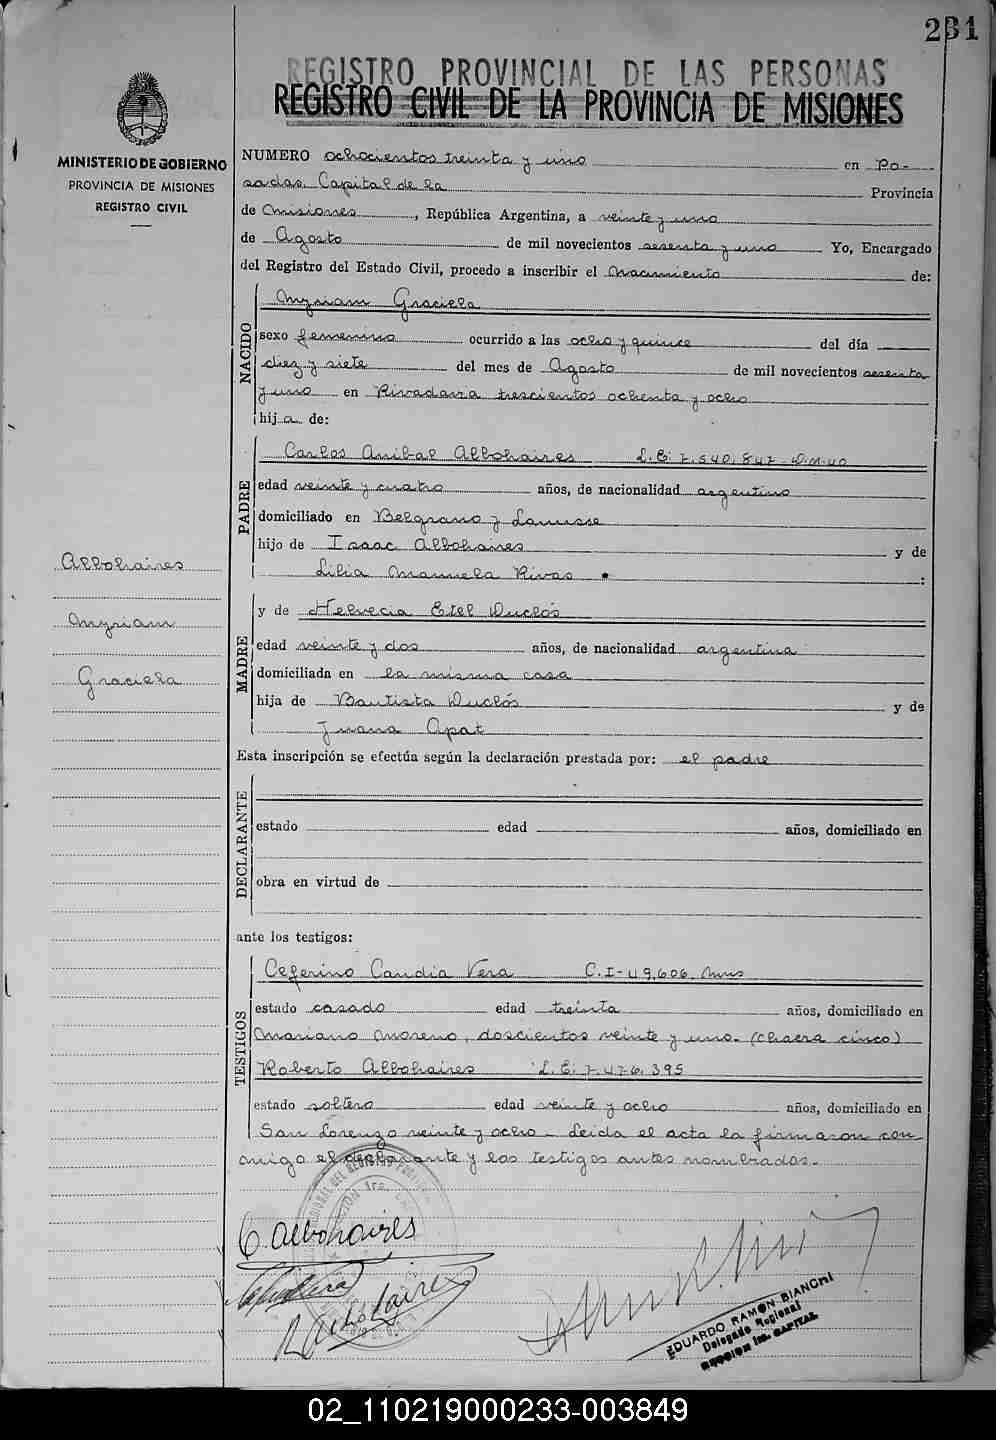 231
REGISTRO PROVINCIAL DE LAS PERSONAS
REGISTRO CIVIL DE LA PROVINCIA DE MISIONES
MINISTERIO DE GOBIERNO
PROVINCIA DE MISIONES
REGISTRO CIVIL
NUMERO ochocientos treinta y uno en Po-
sadas. Capital de la Provincia
de Misiones, República Argentina, a veinte y uno
de Agosto de mil novecientos sesenta y uno Yo, Encargado
del Registro del Estado Civil, procedo a inscribir el Nacimiento de:
NACIDO
Myriam Graciela
sexo femenino ocurrido a las ocho y quince del día
diez y siete del mes de Agosto de mil novecientos sesenta
y uno en Rivadavia trescientos ochenta y ocho
hija de:
PADRE
Carlos Anibal Albohaires L.E. 7.540.847-D.M.40
edad veinte y cuatro años, de nacionalidad argentino
domiciliado en Belgrano y Lanusse
hijo de Isaac Albohaires y de
Lilia Manuela Rivas :
MADRE
y de Helvecia Etel Duclós
edad veinte y dos años, de nacionalidad argentina
domiciliada en la misma casa
hija de Bautista Duclós y de
Juana Apat
Albohaires
Myriam
Graciela
Esta inscripción se efectúa según la declaración prestada por: el padre
DECLARANTE
estado edad años, domiciliado en
obra en virtud de
ante los testigos:
TESTIGOS
Ceferino Candia Vera C.I-49.606. Mnes
estado casado edad treinta años, domiciliado en
Mariano Moreno, doscientos veinte y uno. (Chacra cinco)
Roberto Albohaires L.E. 7.476.395
estado soltero edad veinte y ocho años, domiciliado en
San Lorenzo veinte y ocho - Leida el acta la firmaron con-
migo el declarante y los testigos antes nombrados.
C. Albohaires
EDUARDO RAMON BIANCHI
Delegado Regional
SECCION 1ra. CAPITAL
02_110219000233-003849